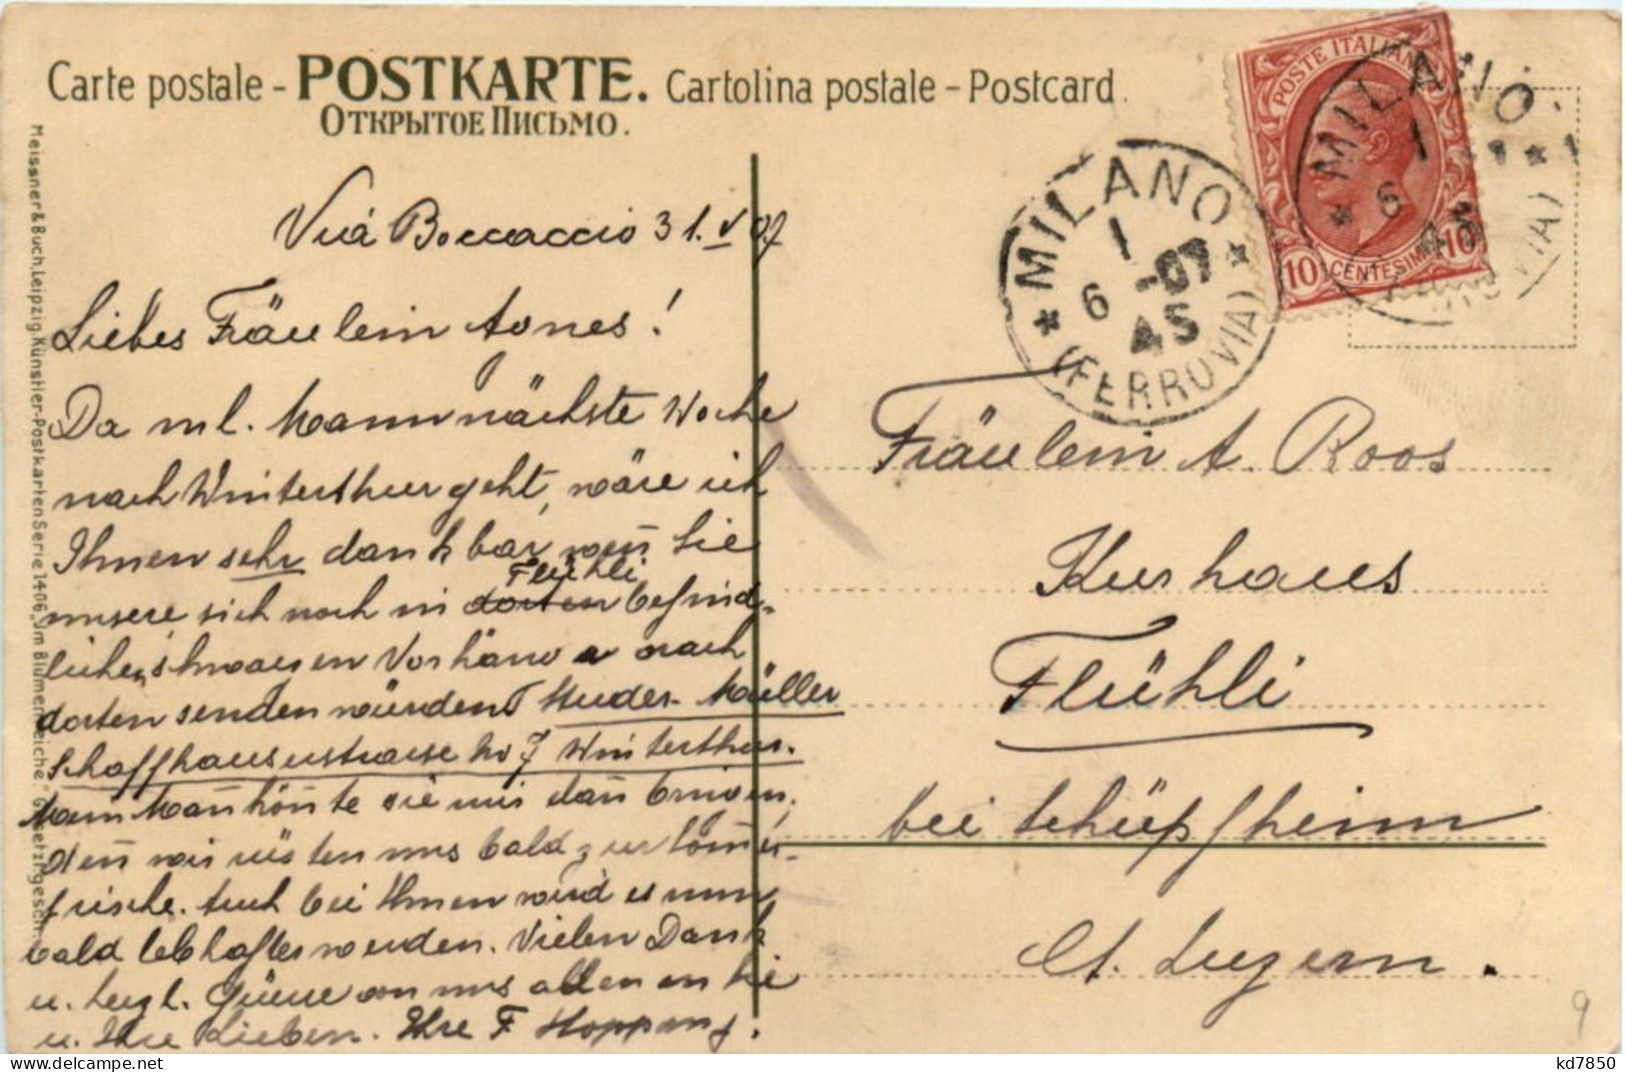 Carte postale - POSTKARTE. Cartolina postale - Postcard.
ОТКРЫТОЕ ПИСЬМО.
POSTE ITALIANE
10 CENTESIMI 10
* MILANO *
1
6 -07
45
(FERROVIA)
* MILANO *
1
6
(FERROVIA)
Viá Boccaccio 31. V 07
Liebes Fräulein Agnes!
Da ml. Mann nächste Woche
nach Winterthur geht, wäre ich
Ihnen sehr dankbar, wen̄ Sie
Flühli
unsere sich noch in dorten befind-
lichen, schwarzen Vorhäng nach
dorten senden würden Studer-Müller
Schaffhauserstrasse No 7 Winterthur.
Mein Man̄ kön̄te sie mir dan̄ bringen,
den̄ wir rüsten uns bald zur Som̄er-
frische. Auch bei Ihnen wird es nun
bald lebhafter werden. Vielen Dank
u. herzl. Grüsse von uns allen an Sie
u. Ihre Lieben. Ihre F. Hopp
Fräulein A. Roos
Kurhaus
Flühli
bei Schüpfheim
Ct. Luzern.
9
Meissner & Buch, Leipzig. Künstler-Postkarten Serie 1406 "Im Blumenreiche" Gesetzl. gesch.
kd7850